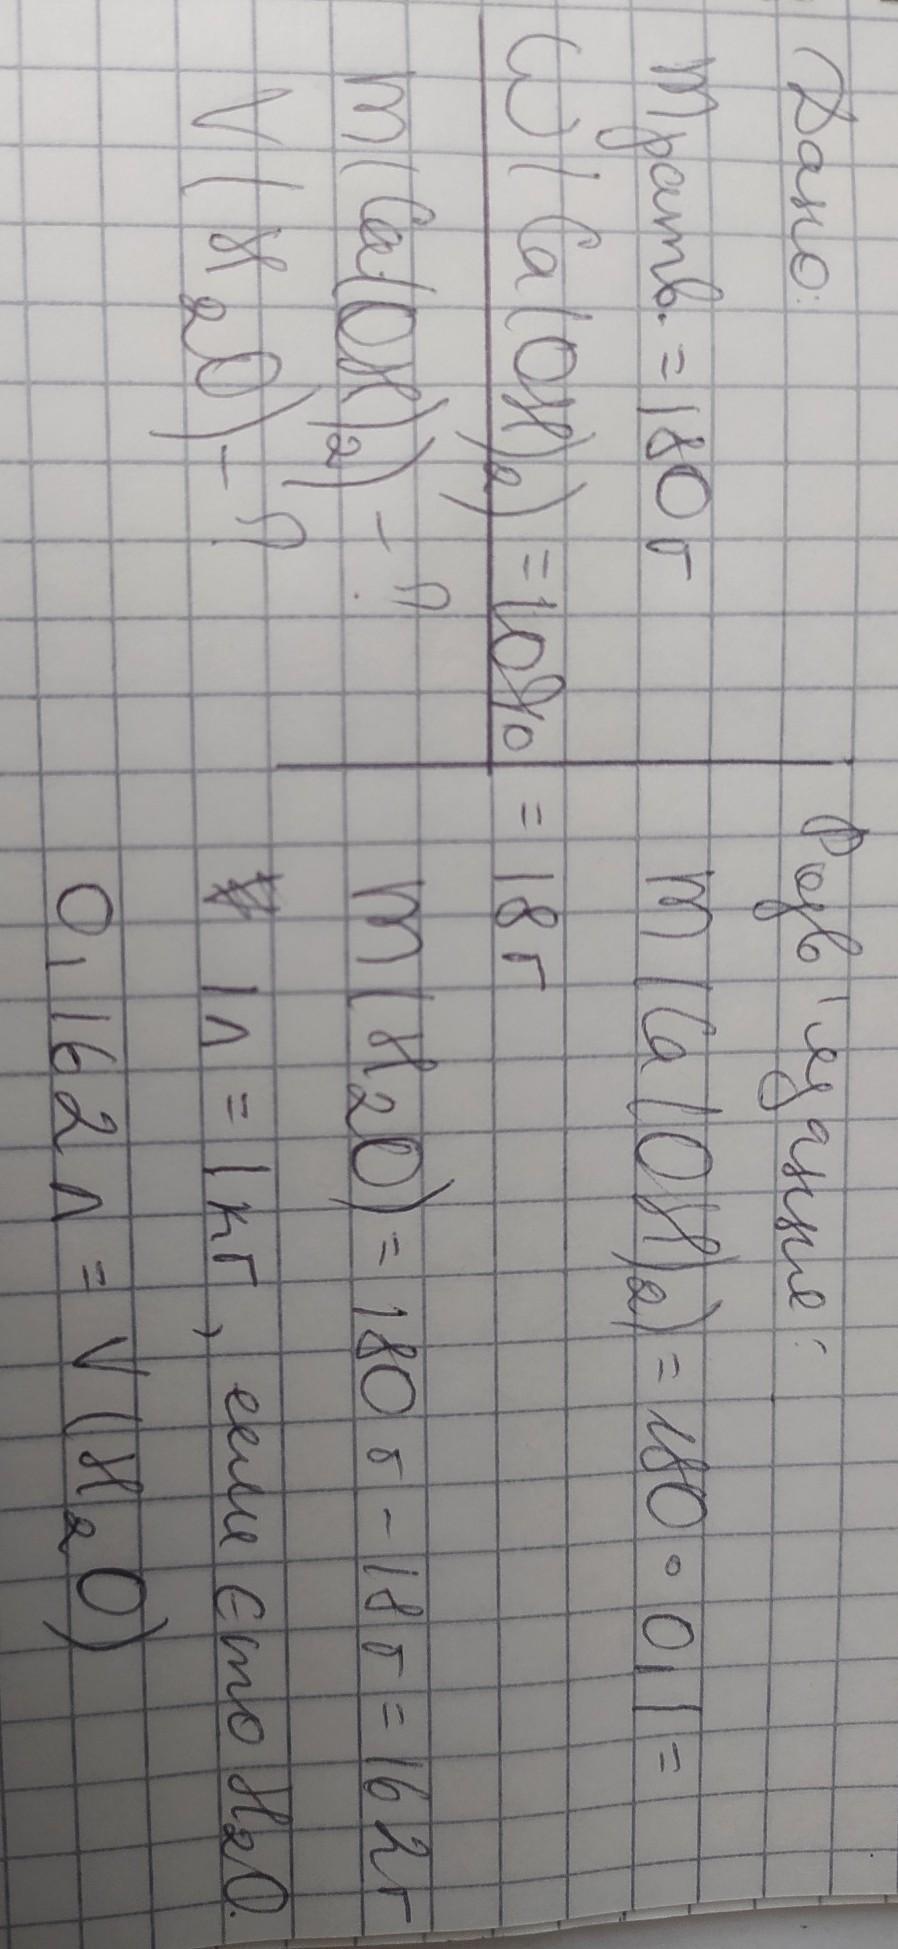 Дано:
m раств. = 180 г
ω(Ca(OH)2) = 10%
m(Ca(OH)2) - ?
V(H2O) - ?
Розв'язання:
m(Ca(OH)2) = 180 • 0,1 =
= 18 г
m(H2O) = 180 г - 18 г = 162 г
1 л = 1 кг, если єто H2O.
0,162 л = V(H2O)